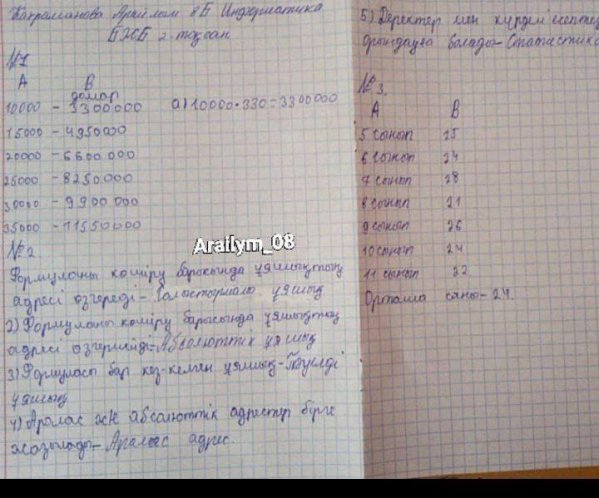 Каграманова Арайлым 8Б Информатика
БЖБ 2-тоқсан.
№1
A B
доллар
10000 - 3300000 a) 10000*330=3300000
15000 - 4950000
20000 - 6600 000
25000 - 8250000
30000 - 9900 000
35000 - 11550000
№2
Arailym_08
Формуланы көшіру барысында ұяшықтың
адресі өзгереді - Салыстырмалы ұяшық
2) Формуланы көшіру барысында ұяшықтың
адресі өзгермейді - Абсолюттік ұяшық
3) Формуласы бар кез-келген ұяшық - Тәуелді
ұяшық
4) Аралас және абсолюттік адрестер бірге
жазылады - Аралас адрес.
5) Деректер мен күрделі есептеу
орындауға болады - Статистика
№3.
A B
5 сынып 25
6 сынып 24
7 сынып 28
8 сынып 21
9 сынып 26
10 сынып 24
11 сынып 22
Орташа саны - 24.